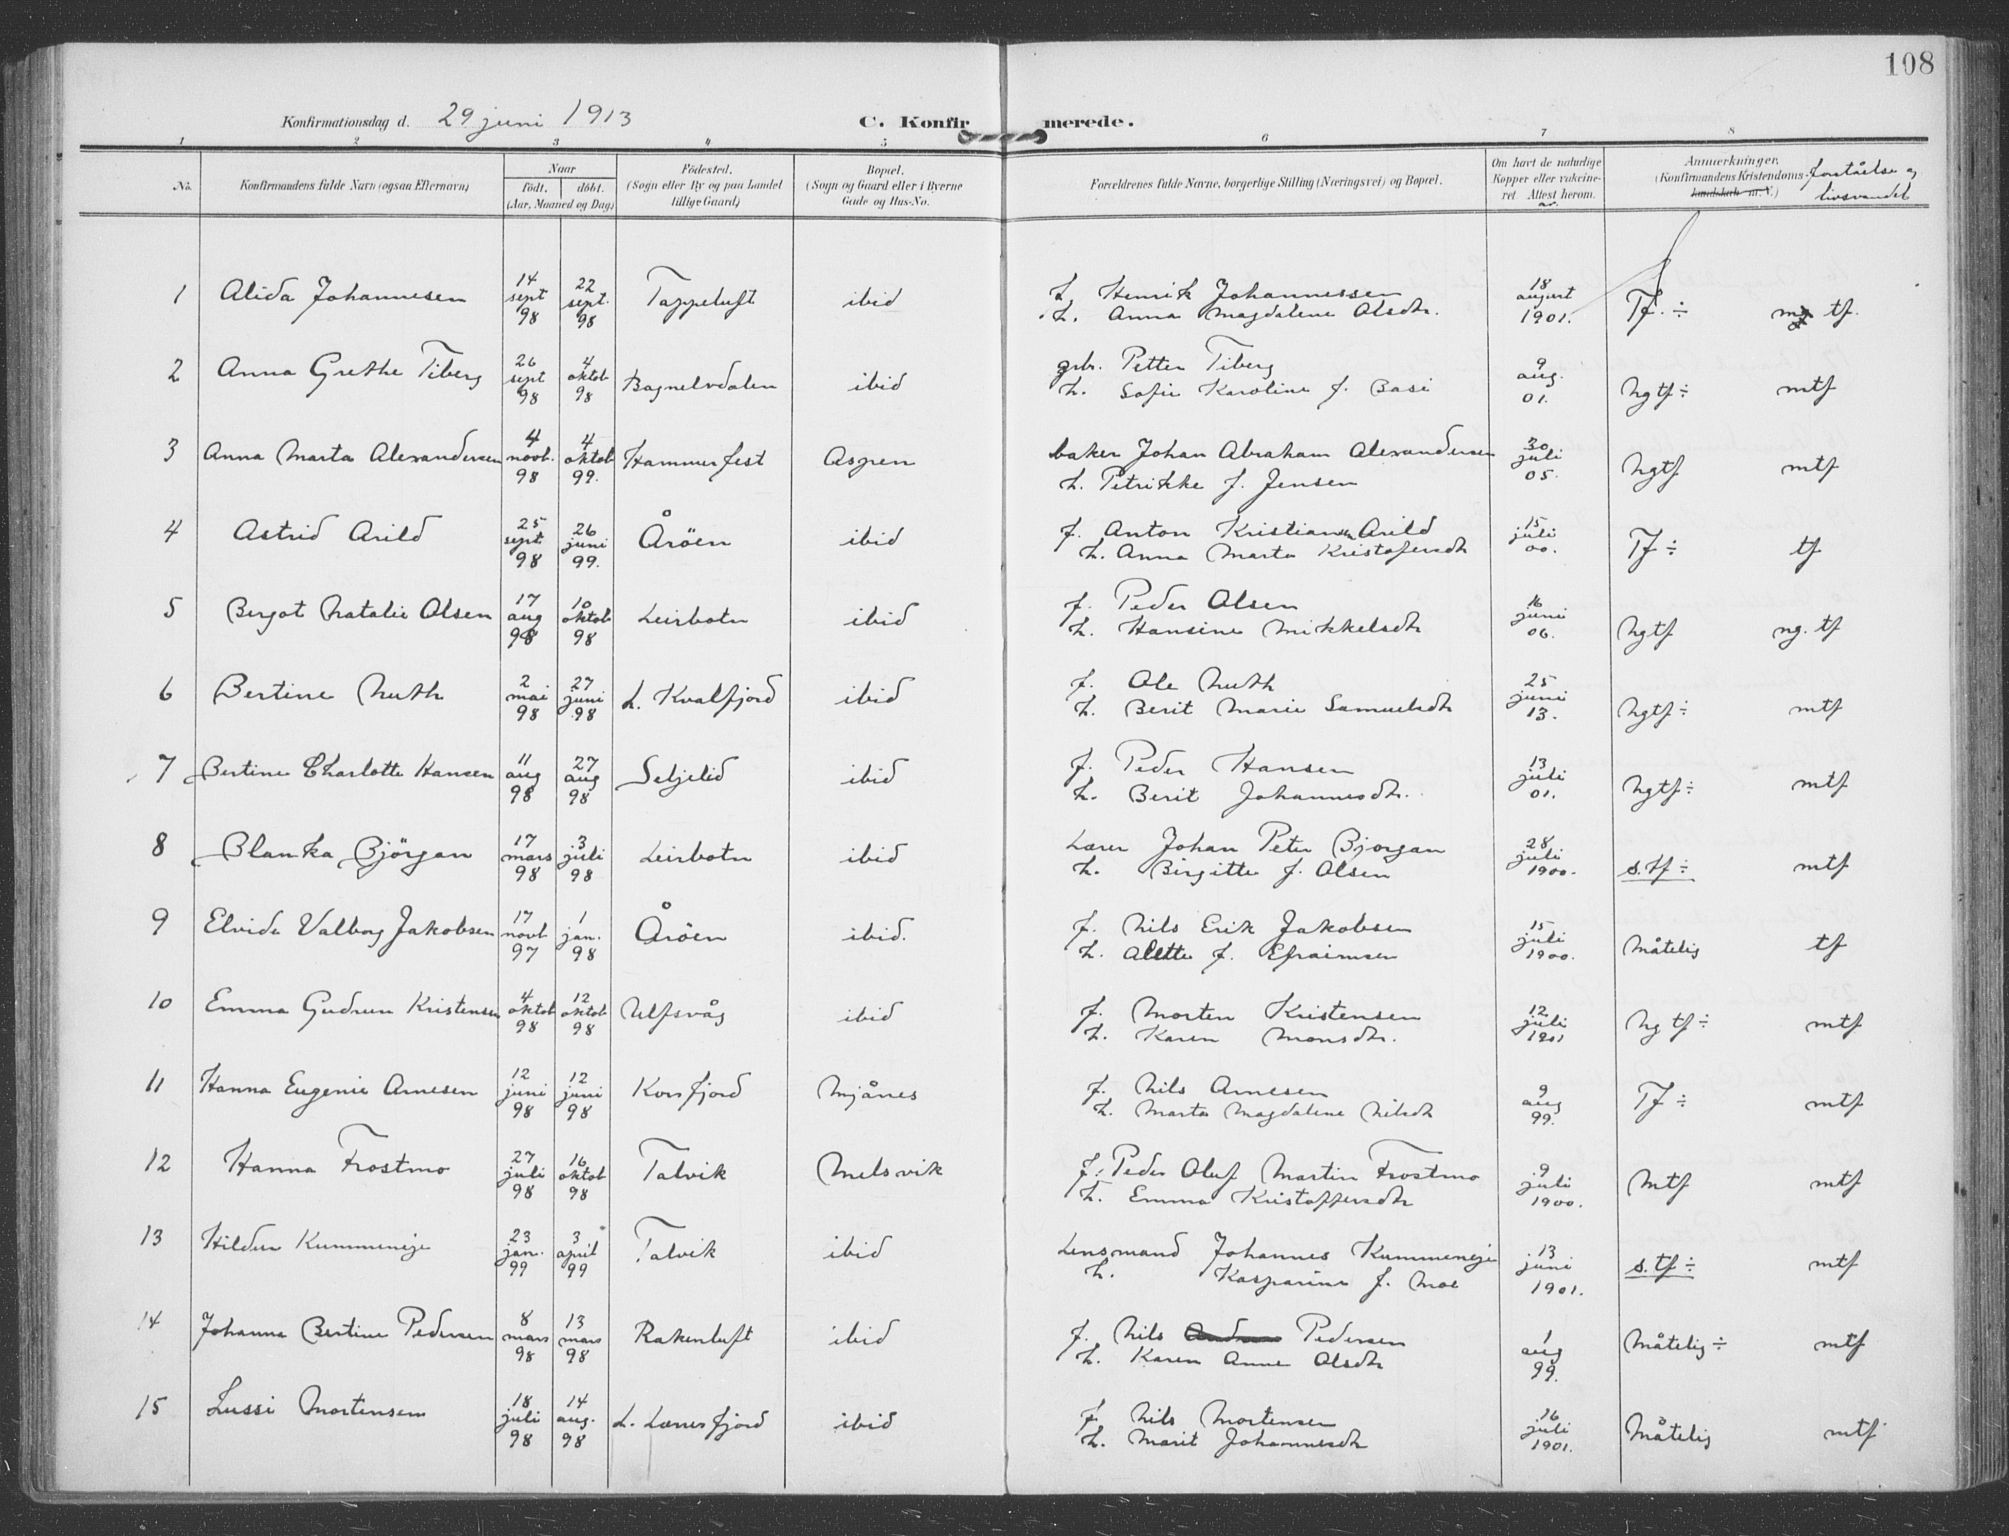 108
Konfirmationsdag d. 29 juni 1913 C. Konfirmerede.
1 2 3 4 5 6 7 8
No. Konfirmandens fulde Navn (ogsaa Efternavn) Naar født, døbt. (Aar, Maaned og Dag) Fødested. (Sogn eller By og paa Landet tillige Gaard) Bopæl. (Sogn og Gaard eller i Byerne Gade og Hus-No. Forældrenes fulde Navne, borgerlige Stilling (Næringsvei) og Bopæl. Om havt de naturlige Kopper eller vakcineret. Attest herom. av. Anmerkninger. (Konfirmandens Kristendomskundskab m. V.) forståelse og livsvandel
1 Alida Johannesen 14 sept 98 22 sept. 98 Tappeluft ibid
f. Henrik Johannessen
h. Anna Magdalene Olsdtr. 18 august 1901. Tf. ÷ tf.
2 Anna Grethe Tiberg 26 sept 98 4 oktob 98 Bognelvdalen ibid
grb. Petter Tiberg
h. Sofie Karoline f. Basi 9 aug. 01. Ngtf ÷ mtf
3 Anna Marta Alexandersen 4 novb. 98 4 oktob 99. Hammerfest Aspen
baker Johan Abraham Alexandersen
h. Petrikke f. Jensen 30 juli 05. Ngtf mtf
4 Astrid Arild 25 sept 98 26 juni 99. Årøen ibid
f. Anton Kristiansen Arild
h. Anna Marta Kristofersdtr 15 juli 00. Tf ÷ tf
5 Bergot Natalie Olsen 17 aug 98 10 oktob 98 Leirbotn ibid
f. Peder Olsen
h. Hansine Mikkelsdtr 16 juni 06. Ngtf ng. tf
6 Bertine Nuth 2 mai 98 27 juni 98 L. Kvalfjord ibid
f. Ole Nuth
h. Berit Marie Samuelsdtr 25 juni 13. Ngtf ÷ mtf
7 Bertine Charlotte Hansen 11 aug 98 27 aug 98 Seljelid ibid
f. Peder Hansen
h. Berit Johannesdtr. 13 juli 01. Ngtf ÷ mtf
8 Blanka Bjørgan 17 mars 98 3 juli 98 Leirbotn ibid
Lærer Johan Peter Bjørgan
h. Birgitte f. Olsen 28 juli 1900. s. tf ÷ mtf
9 Elvida Valborg Jakobsen 17 novb 97 1 jan. 98 Årøen ibid.
f. Nils Erik Jakobsen
h. Alette f. Efraimsen 15 juli 1900. Måtelig tf
10 Emma Gudrun Kristensen 4 oktob 98 12 oktob 98 Ulfsvåg ibid
f. Morten Kristensen
h. Karen Monsdtr. 12 juli 1901 Ng tf ÷ mtf
11 Hanna Eugenie Arnesen 12 juni 98 12 juni 98 Korsfjord Mjånes
f. Nils Arnesen
h. Marta Magdalene Nilsdtr 9 aug 99. Tf ÷ mtf
12 Hanna Frostmo 27 juli 98 16 oktob 98 Talvik Melsvik
f. Peder Oluf Martin Frostmo
h. Emma Kristoffersdtr 9 juli 1900. Mtf mtf
13 Hildur Kummeneje 23 jan. 99 3 april 99 Talvik ibid
Lensmand Johannes Kummeneje
h. Kasparine f. Moe 13 juni 1901. s. tf ÷ mtf
14 Johanna Bertine Pedersen 8 mars 98 13 mars 98 Rakenluft ibid
f. Nils Pedersen
h. Karen Anne Olsdtr 1 aug 99. Måtelig ÷ mtf
15 Lussi Mortensen 18 juli 98 14 aug. 98 L. Lerresfjord ibid
f. Nils Mortensen
h. Marit Johannesdtr 16 juli 1901. Måtelig mtf